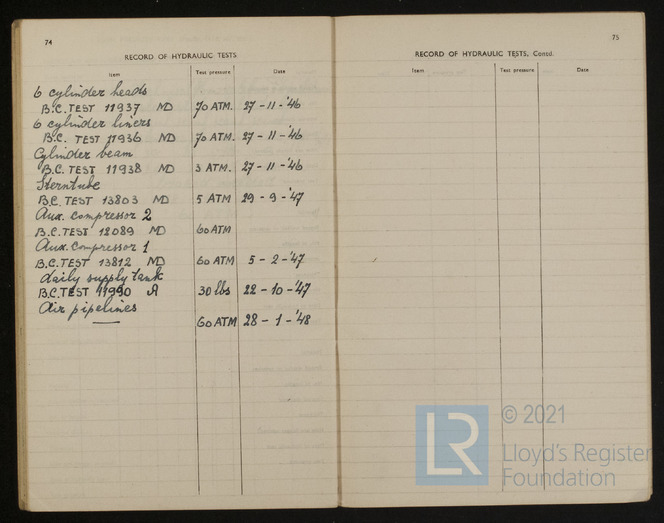 74
RECORD OF HYDRAULIC TESTS
Item Test pressure Date
6 cylinder heads
B.C. TEST 11937 MD 70 ATM. 27-11-'46
6 cylinder liners
B.C. TEST 11936 MD 70 ATM. 27-11-'46
Cylinder beam
B.C. TEST 11938 MD 3 ATM. 27-11-'46
Sterntube
B.C. TEST 13803 MD 5 ATM 29-9-'47
Aux. compressor 2
B.C. TEST 12089 MD 60 ATM
Aux. Compressor 1
B.C. TEST 13812 MD 60 ATM 5-2-'47
daily supply tank
B.C. TEST 11990 A 30 lbs 22-10-'47
Air pipelines
60 ATM 28-1-'48
75
RECORD OF HYDRAULIC TESTS, Contd.
Item Test pressure Date
LR
© 2021
Lloyd's Register
Foundation